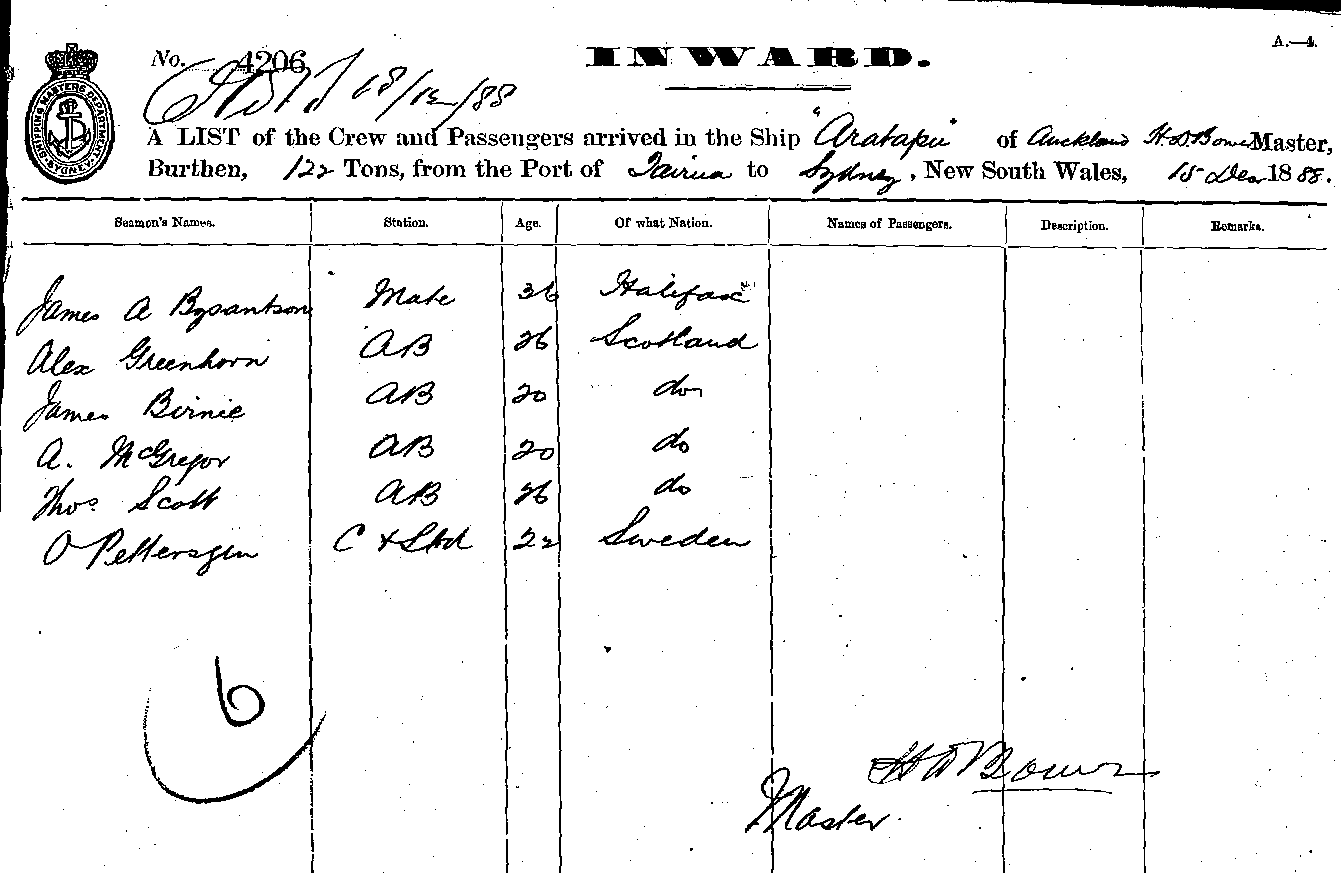 A.—4.
No. 4206 INWARD.
18/12/88
SHIPPING MASTERS DEPARTMENT SYDNEY
A LIST of the Crew and Passengers arrived in the Ship "Aratapu" of Auckland H. D. Master,
Burthen, 122 Tons, from the Port of Tairua to Sydney, New South Wales, 15 Dec 1888.
Seamen's Names. Station. Age. Of what Nation. Names of Passengers. Description. Remarks.
James A Bysantson Mate 36 Halifax
Alex Greenhorn AB 26 Scotland
James Birnie AB 20 do
A. McGregor AB 20 do
Thos. Scott AB 26 do
O Pettersen C & Std 22 Sweden
6
H D
Master.